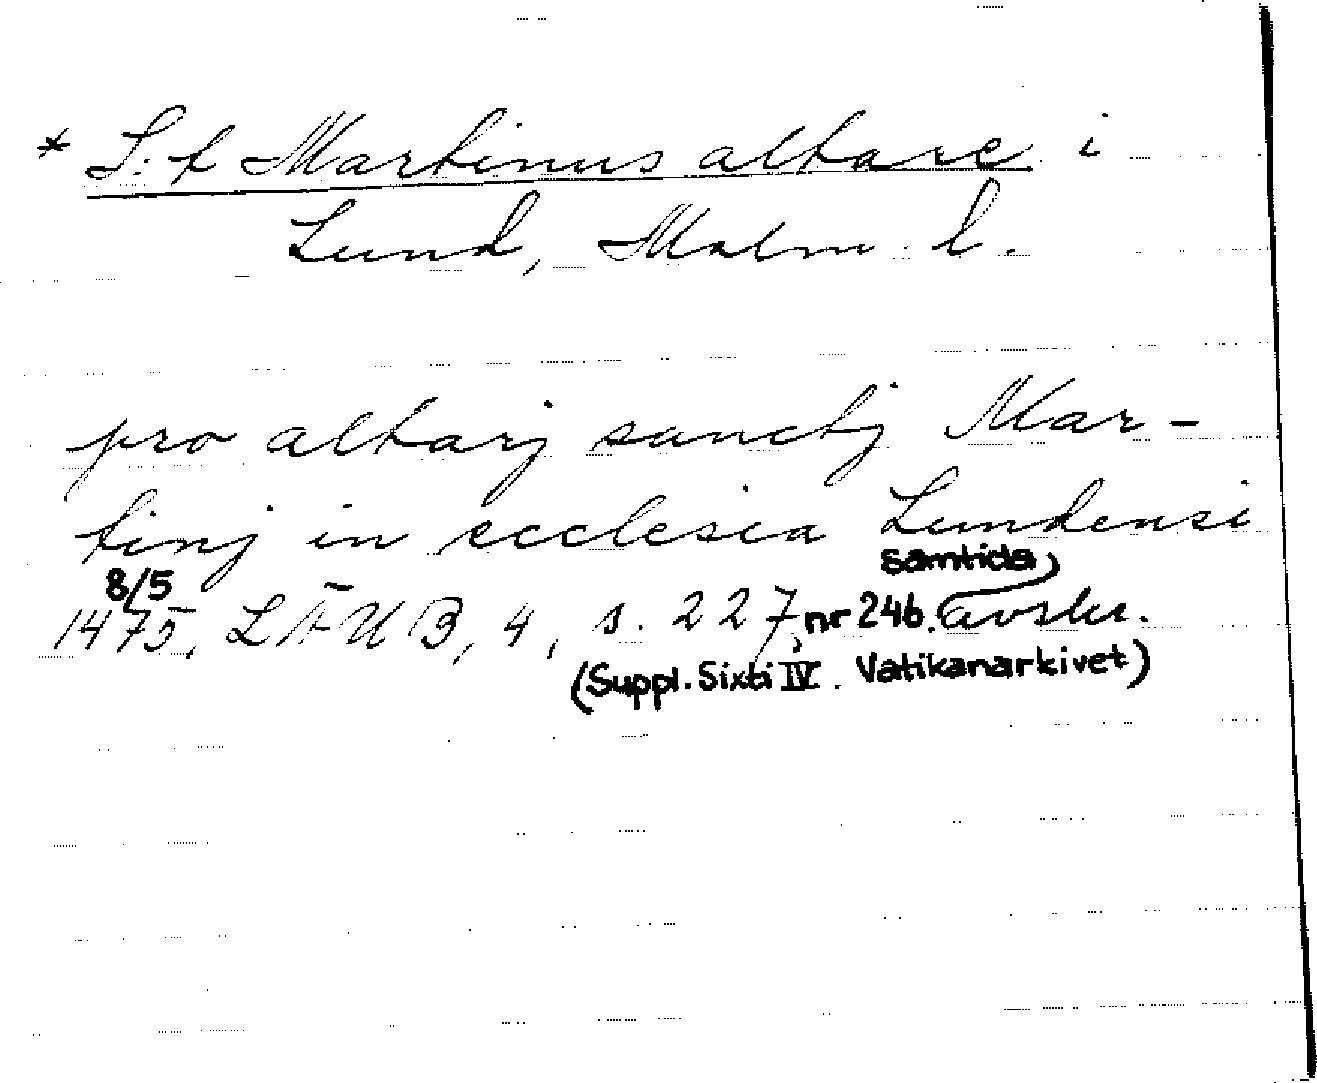 * S:t Martinus altare i
Lund, Malm. l.
pro altarj sanctj Mar-
tinj in ecclesia Lundensi
samtida
8/5
1475, LÄUB, 4, s. 227, nr 246. avskr.
(Suppl. Sixti IV. Vatikanarkivet)